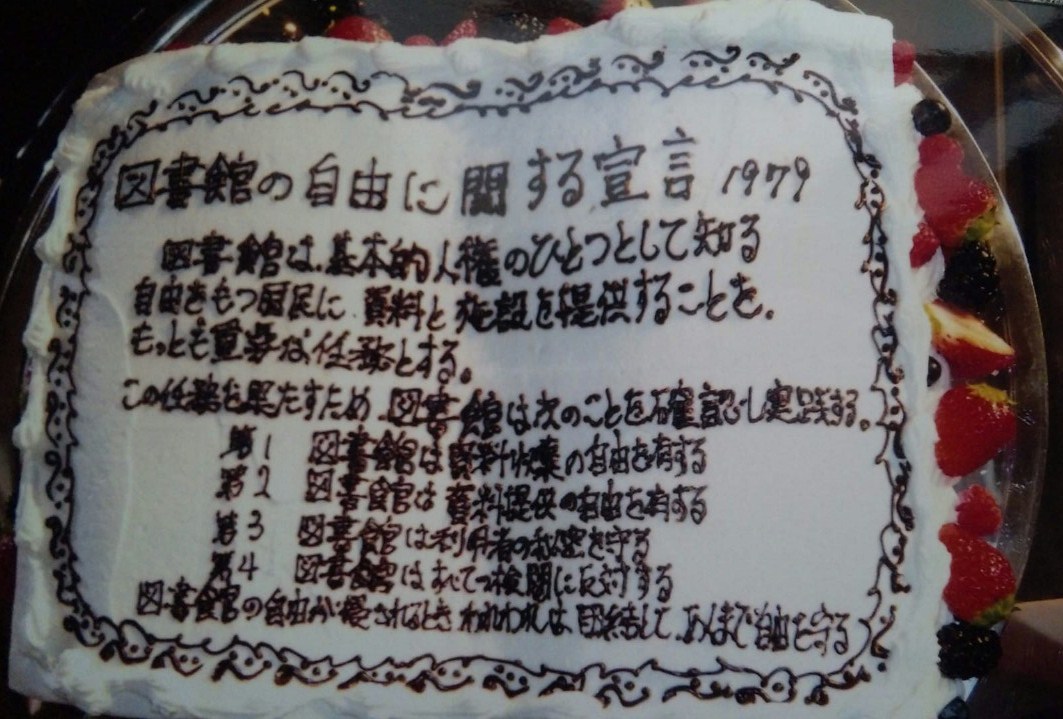 図書館の自由に関する宣言 1979
図書館は、基本的人権のひとつとして知る
自由をもつ国民に、資料と施設を提供することを、
もっとも重要な任務とする。
この任務を果たすため、図書館は次のことを確認し実践する。
第1 図書館は資料収集の自由を有する
第2 図書館は資料提供の自由を有する
第3 図書館は利用者の秘密を守る
第4 図書館はすべての検閲に反対する
図書館の自由が侵されるとき、われわれは団結して、あくまで自由を守る